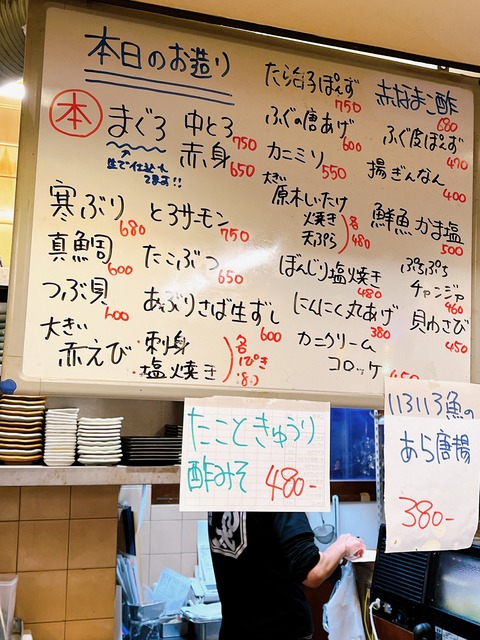 本日のお造り
本 まぐろ 中とろ 750
赤身 650
生で仕込んでます!!
寒ぶり 680
とろサーモン 750
真鯛 600
たこぶつ 650
つぶ貝 600
あぶりさば生ずし 600
大ぎい
赤えび
・刺身
・塩焼き
各
1ぴき
たら白子ぽんず 750
ふぐの唐あげ 600
カニミソ 550
大ぎい
原木しいたけ
焼き
天ぷら
各
480
ぼんじり塩焼き 480
にんにく丸あげ 380
カニクリーム
コロッケ 450
赤なまこ酢 680
ふぐ皮ぽんず 470
揚ぎんなん 400
鮮魚かま塩 500
ぷちぷち
チャンジャ 460
貝わさび 450
たこときゅうり
酢みそ 480-
いろいろ魚の
あら唐揚
380-